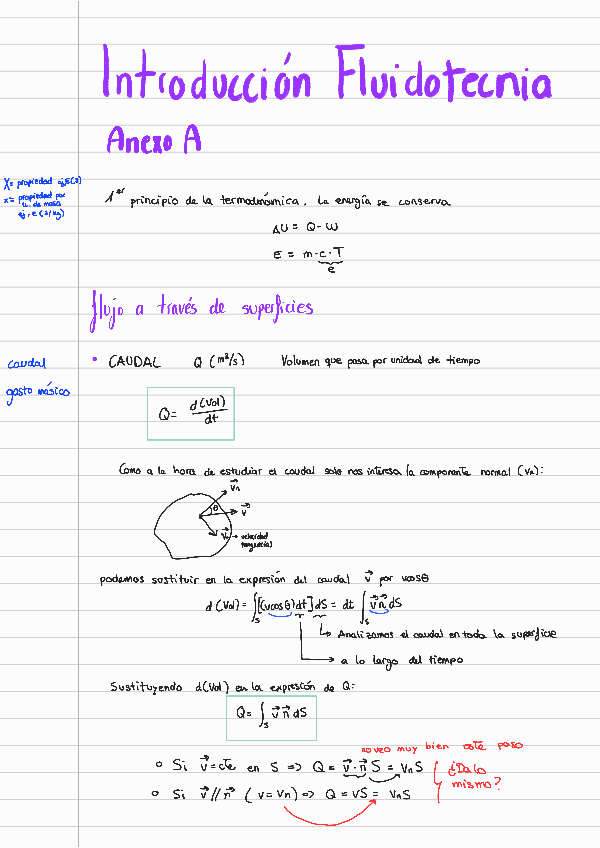 Introducción Fluidotecnia
Anexo A
X= propiedad ej, E (J)
x= propiedad por
u. de masa
ej. e (J/kg)
1er principio de la termodinámica. La energía se conserva
ΔU = Q - W
E = m·c·T
e
flujo a través de superficies
caudal
gasto másico
• CAUDAL Q (m³/s) Volumen que pasa por unidad de tiempo
Q = d(Vol)/dt
Como a la hora de estudiar el caudal solo nos interesa la componente normal (Vn):
Vn
θ
V
velocidad
tangencial
podemos sustituir en la expresión del caudal v⃗ por vcosθ
d(Vol) = ∫s[(vcosθ)dt]dS = dt ∫s v⃗ n⃗ dS
Analizamos el caudal en toda la superficie
a lo largo del tiempo
Sustituyendo d(Vol) en la expresión de Q:
Q = ∫s v⃗ n⃗ dS
no veo muy bien este paso
o Si v⃗ = cte en S => Q = v⃗·n⃗ S = VnS
o Si v⃗ // n⃗ (v = Vn) => Q = vS = VnS
¿Da lo
mismo?